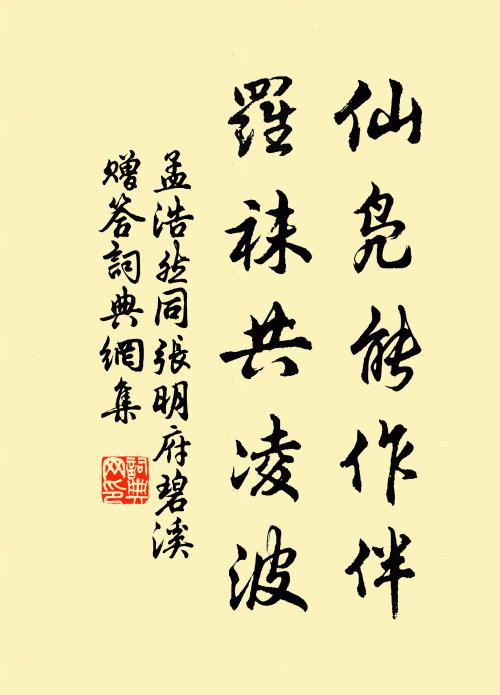 仙凫能作伴
羅袜共凌波
孟浩然同張明府碧溪
贈答詞典網集
詞典
网印